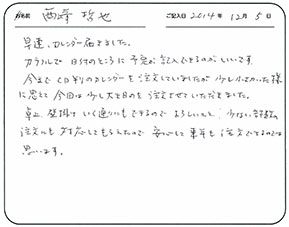 お名前 西峰 哲也 ご記入日 2014年 12月 5日
早速、カレンダー届きました。
カラフルで 日付のところに 予定が記入できるのがいいです。
今まで CD判りのカレンダーを注文していましたが 少し小さかった様
に思えて 今回は少し大きめのを注文させていただきました。
卓上、壁掛け いく通りにもできるので よろしいかと、少ない部数の
注文にも 対応してもらえたので 安心して来年も注文できるのでは
思います。